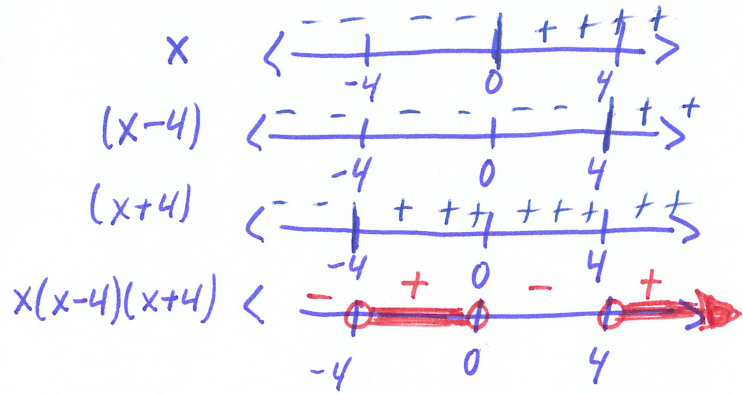 - - - - + + + +
x < >
-4 0 4
- - - - - - + +
(x-4) < >
-4 0 4
- - + + + + + + + +
(x+4) < >
-4 0 4
- + - +
x(x-4)(x+4) <
-4 0 4